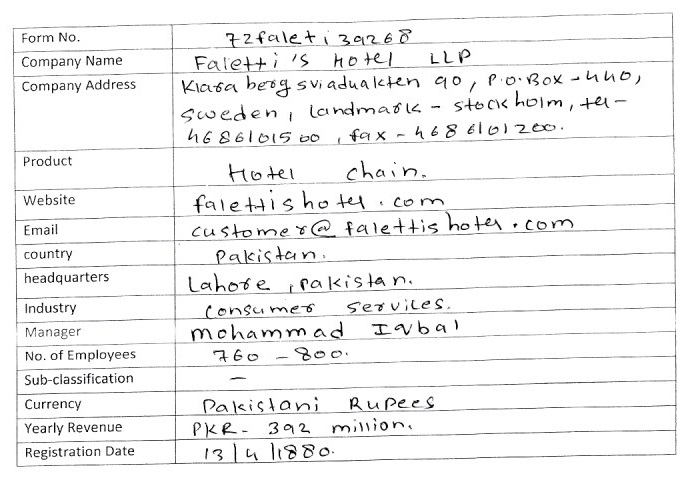 Form No. 72faleti39268
Company Name Faletti's Hotel LLP
Company Address Klarabergsviadukten 90, P.O.Box - 440,
sweden, landmark - stockholm, tel -
4686101500, fax - 4686101200.
Product Hotel chain.
Website falettishotel.com
Email customer@falettishotel.com
country Pakistan.
headquarters Lahore, pakistan.
Industry Consumer services.
Manager Mohammad Iqbal
No. of Employees 760 - 800.
Sub-classification —
Currency Pakistani Rupees
Yearly Revenue PKR - 392 million.
Registration Date 13/4/1880.